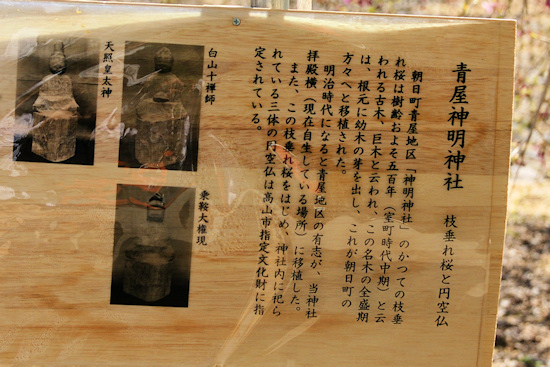 青屋神明神社
枝垂れ桜と円空仏
朝日町青屋地区「神明神社」のかつての枝垂
れ桜は樹齢およそ五百年(室町時代中期)と云
われる古木、巨木と云われ、この名木の全盛期
は、根元に幼木の芽を出し、これが朝日町の
方々へと移植された。
明治時代になると青屋地区の有志が、当神社
拝殿横(現在自生している場所)に移植した。
また、この枝垂れ桜をはじめ、神社内に祀ら
れている三体の円空仏は高山市指定文化財に指
定されている。
白山十禅師
天照皇太神
乗鞍大権現